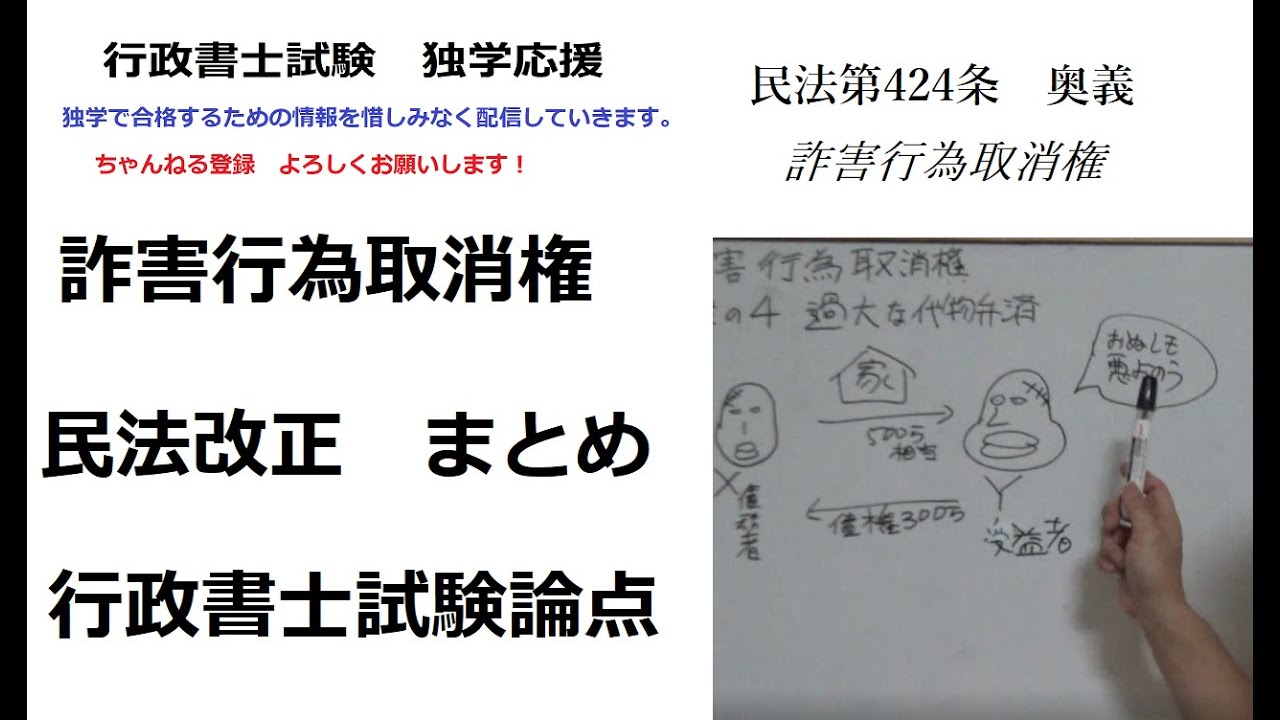 行政書士試験　独学応援
独学で合格するための情報を惜しみなく配信していきます。
ちゃんねる登録　よろしくお願いします！
詐害行為取消権
民法改正　まとめ
行政書士試験論点
民法第424条　奥義
詐害行為取消権
害行為取消権
の4 過大な代物弁済
おぬしも
悪よのう
家
500万
相当
X
債務者
債権300万
Y
受益者